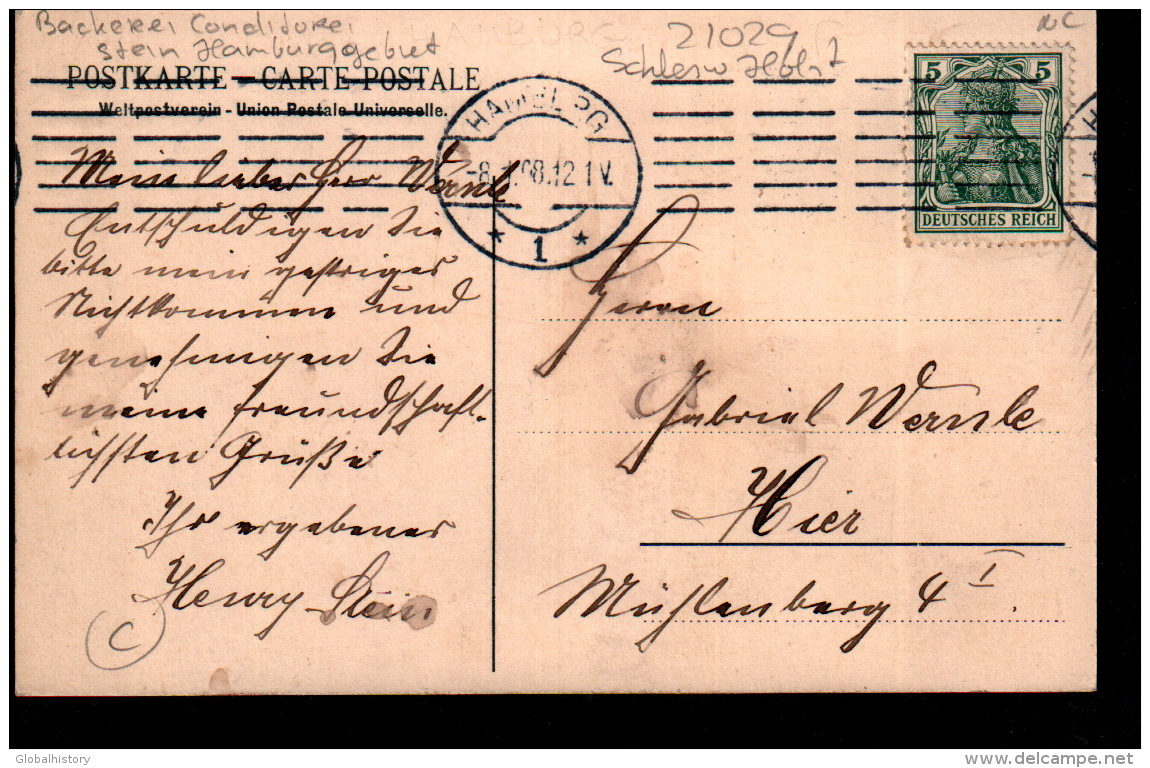 Bäckerei Conditorei
Stein Hamburggebiet
21029
Schlesw Holst
NC
POSTKARTE - CARTE POSTALE
Weltpostverein - Union Postale Universelle.
HAMBURG
-8. 08.12 1 V.
* 1 *
5 5
DEUTSCHES REICH
Mein lieber Herr Wernle
Entschuldigen Sie
bitte mein gestriges
Nichtkommen und
genehmigen Sie
meine freundschaft-
lichsten Grüße
Ihr ergebener
Henry Stein
C
Herrn
Gabriel Wernle
Hier
Mühlenberg 4 I.
Globalhistory
www.delcampe.net